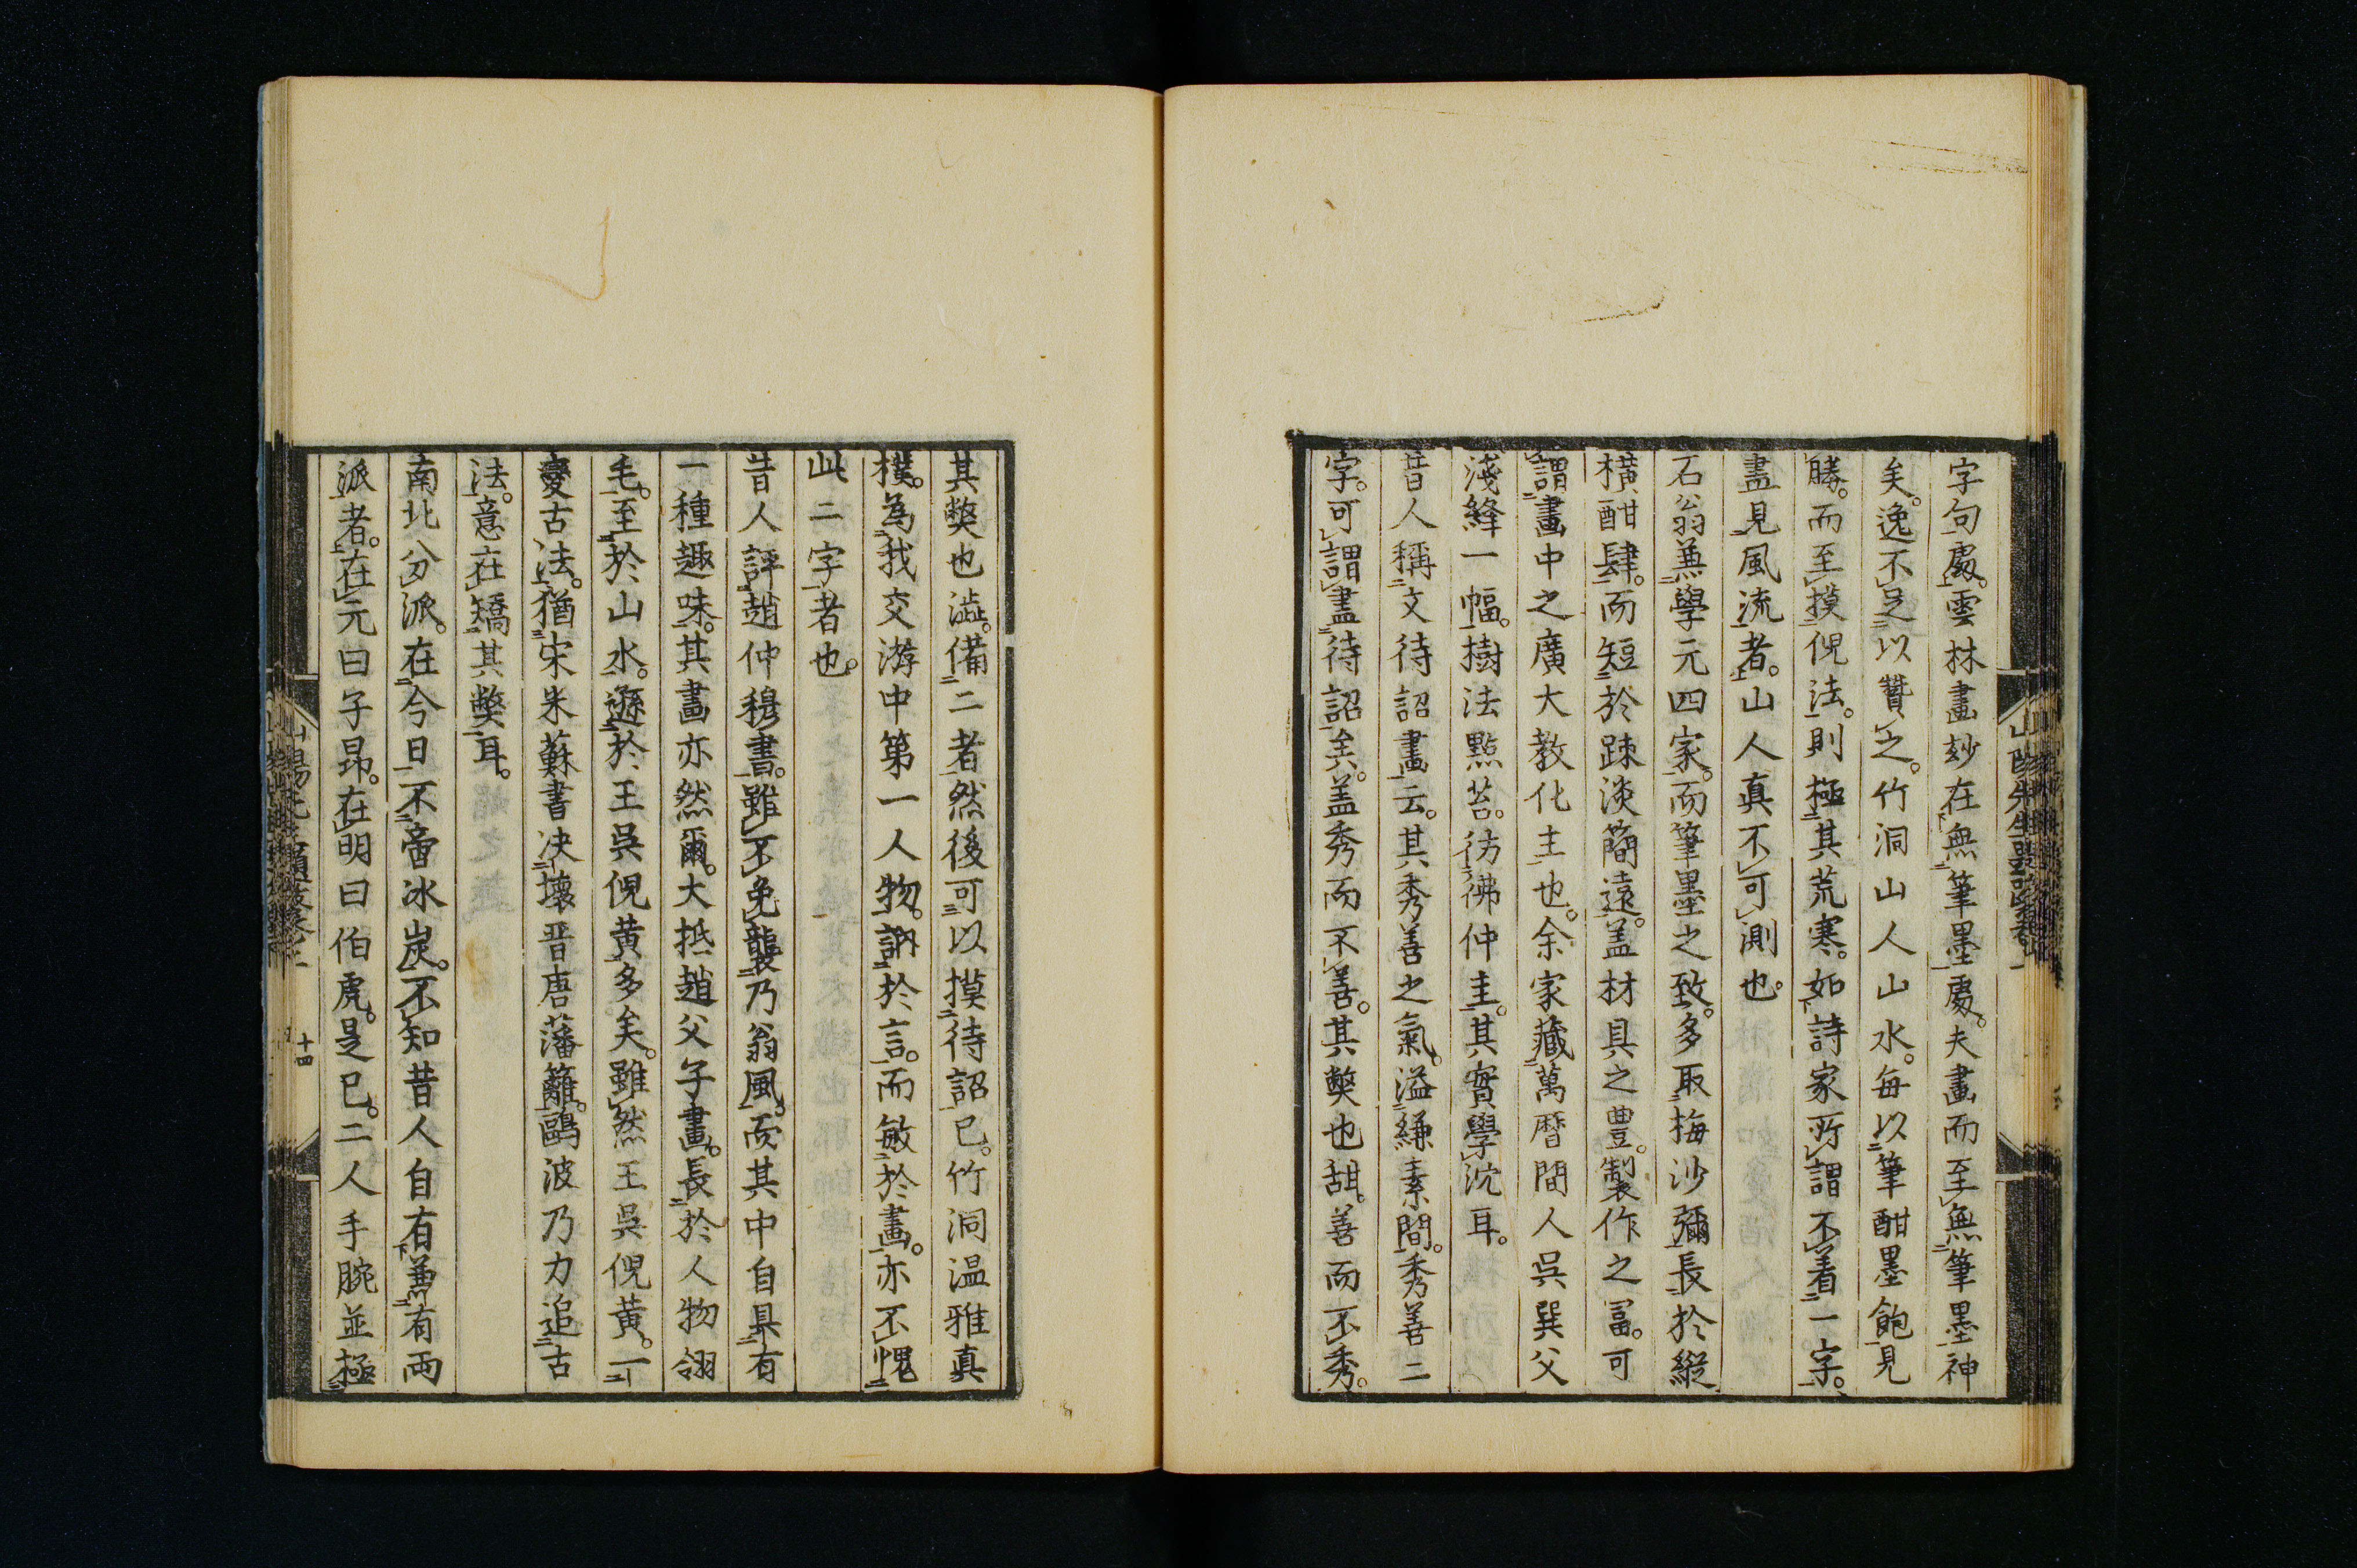 字句處。雲林畫玅在無筆墨處。夫畫而至無筆墨神
矣。逸不足以贊之。竹洞山人山水。每以筆酣墨飽見
勝。而至摸倪法。則極其荒寒。如詩家所謂不着一字。
盡見風流者。山人真不可測也。
石翁兼學元四家。而筆墨之致。多取梅沙彌長於縱
橫酣肆。而短於踈淡簡遠。盖材具之豊。製作之冨。可
謂畫中之廣大教化主也。余家藏萬暦間人吳巽父
淺絳一幅。樹法點苔。彷彿仲圭。其實學沈耳。
昔人稱文待詔畫云。其秀善之氣。溢縑素間。秀善二
字。可謂盡待詔矣。盖秀而不善。其獘也甜。善而不秀。
其獘也澁。備二者然後可以摸待詔已。竹洞温雅真
樸。為我交游中第一人物。訥於言。而敏於畫。亦不愧
此二字者也。
昔人評趙仲穆書。雖不免襲乃翁風。而其中自具有
一種趣味。其畫亦然爾。大抵趙父子畫。長於人物翎
毛。至於山水。遜於王吳倪黄多矣。雖然王吳倪黄。一
變古法。猶宋朱蘇書决壞晋唐藩籬。鷗波乃力追古
法。意在矯其獘耳。
南北分派。在今日不啻冰炭。不知昔人自有兼有両
派者。在元曰子昂。在明曰伯虎。是已。二人手腕並極
十四